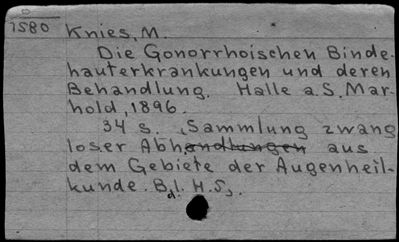 7580 Knies, M.
Die Gonorrhoischen Binde-
hauterkrankungen und deren
Behandlung. Halle a.S. Mar-
hold, 1896.
34 s. (Sammlung zwang
loser Abhandlungen aus
dem Gebiete der Augenheil-
kunde. Bd.1. H.5).